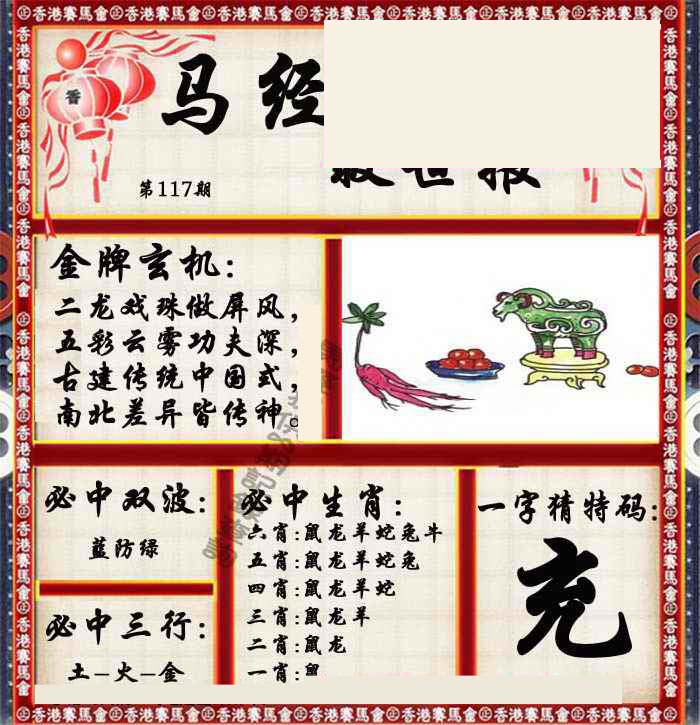 香港賽馬會
马经
救世报
第117期
香
金牌玄机:
二龙戏珠做屏风,
五彩云雾功夫深,
古建传统中国式,
南北差异皆传神。
必中双波:
蓝防绿
必中三行:
土-火-金
必中生肖:
六肖:鼠龙羊蛇兔牛
五肖:鼠龙羊蛇兔
四肖:鼠龙羊蛇
三肖:鼠龙羊
二肖:鼠龙
一肖:鼠
一字猜特码:
充